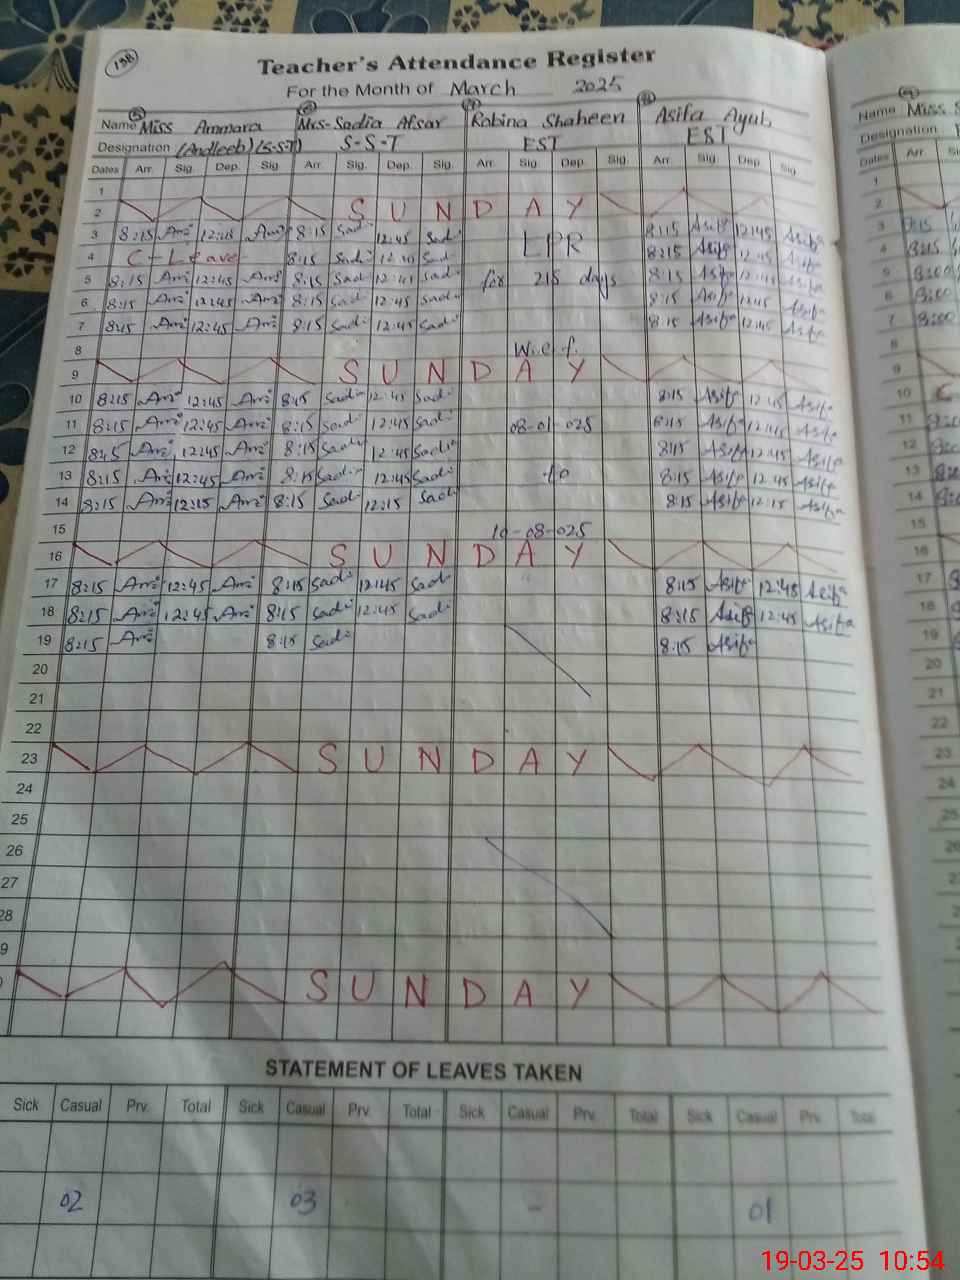 138
Teacher's Attendance Register
For the Month of March 2025
Name Miss Ammara Mrs-Sadia Afsar Robina Shaheen Asifa Ayub
Designation (Andleeb) (S-S-T) S-S-T EST EST
Dates Arr. Sig. Dep. Sig. Arr. Sig. Dep. Sig. Arr. Sig. Dep. Sig. Arr. Sig. Dep. Sig.
1
2 SUNDAY
3 8:15 12:45 8:15 Sad 12:45 Sad LPR 8:15 Asifa 12:45 Asifa
4 C-Leave 8:15 Sad 12:45 Sad 8:15 Asifa 12:45 Asifa
5 8:15 12:45 8:15 Sad 12:45 Sad for 215 days 8:15 Asifa 12:45 Asifa
6 8:15 12:45 8:15 Sad 12:45 Sad 8:15 Asifa 12:45 Asifa
7 8:15 12:45 8:15 Sad 12:45 Sad 8:15 Asifa 12:45 Asifa
8 W.e.f.
9 SUNDAY
10 8:15 12:45 8:15 Sad 12:45 Sad 8:15 Asifa 12:45 Asifa
11 8:15 12:45 8:15 Sad 12:45 Sad 08-01-025 8:15 Asifa 12:45 Asifa
12 8:15 12:45 8:15 Sad 12:45 Sad 8:15 Asifa 12:45 Asifa
13 8:15 12:45 8:15 Sad 12:45 Sad to 8:15 Asifa 12:45 Asifa
14 8:15 12:15 8:15 Sad 12:15 Sad 8:15 Asifa 12:15 Asifa
15 10-08-025
16 SUNDAY
17 8:15 12:45 8:15 Sad 12:45 Sad 8:15 Asifa 12:45 Asifa
18 8:15 12:45 8:15 Sad 12:45 Sad 8:15 Asifa 12:45 Asifa
19 8:15 8:15 Sad 8:15 Asifa
20
21
22
23 SUNDAY
24
25
26
27
28
9
SUNDAY
STATEMENT OF LEAVES TAKEN
Sick Casual Prv. Total Sick Casual Prv. Total Sick Casual Prv. Total Sick Casual Prv. Total
02 03 - 01
Name Miss
Designation
Dates Arr.
1
2
3 8:15
4 8:15
5 8:00
6 8:00
7 8:00
8
9
10 C
11
12
13
14
15
16
17
18
19
20
21
22
23
24
25
26
27
28
19-03-25 10:54